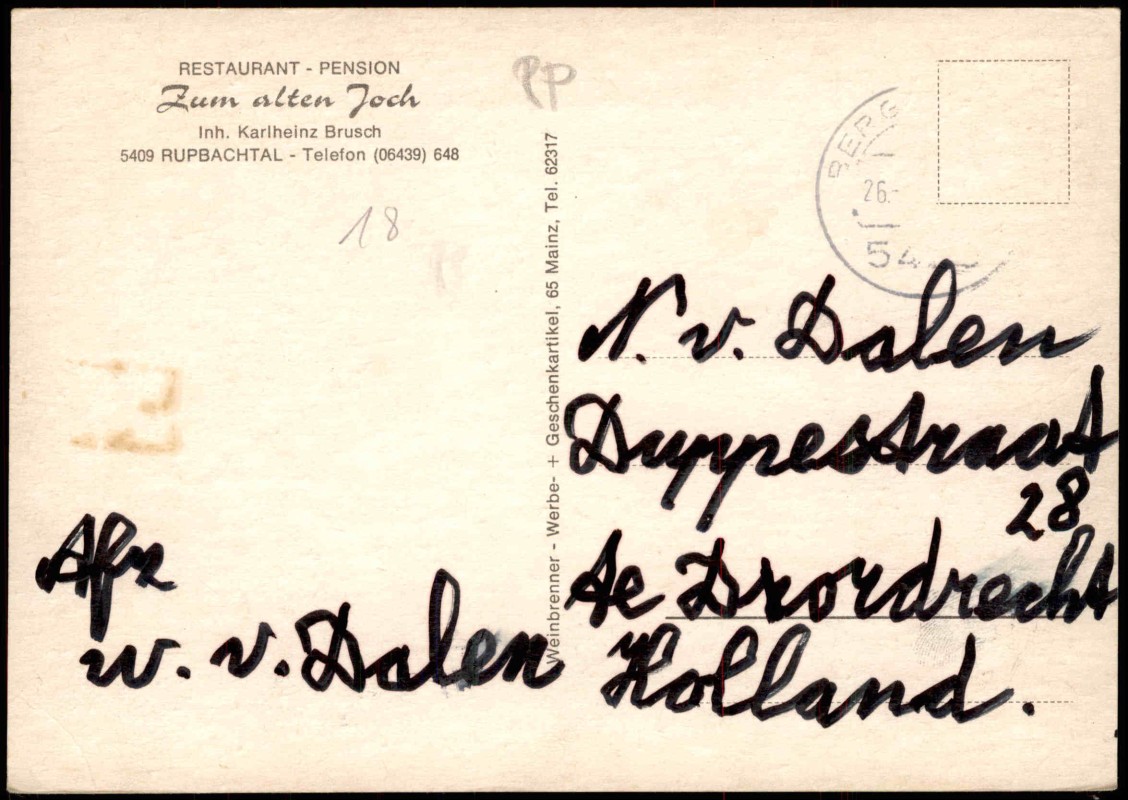 RESTAURANT - PENSION
Zum alten Joch
Inh. Karlheinz Brusch
5409 RUPBACHTAL - Telefon (06439) 648
PP
18
Weinbrenner - Werbe- + Geschenkartikel, 65 Mainz, Tel. 62317
BERG
26.-
54
N. v. Dalen
Duppestraat
28
te Drordrecht
Holland.
Afz
w. v. Dalen